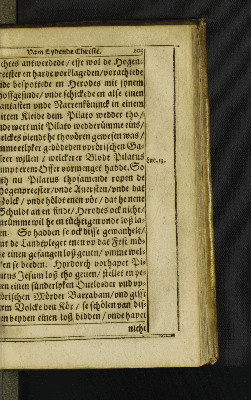 Vam Lydende Christi. 205
chtes antwerdede / efft wol de Hogen-
reester en harde vorklageden / vorachtede
nde bespottede en Herodes mit synem
hoffgesinde / vnde schickede en alse einen
antasten vnde Narrenkönnick in einem
itten Kleide dem Pilato wedder tho /
nde wert mit Pilato wedderümme eins /
elckes viendt he thovören gewesen was /
mme etlyker
leer willen / welckerer Blodt Pilatus
Luc. 13.
mp erem Offer vormenget hadde. So
ist nu Pilatus thosamende ropen de
Hogenpreester / vnde Auersten / vnde dat
Volck / vnde höldt enen vör / dat he nene
Schuldt an em finde / Herodes ock nicht /
arümme wil he en tüchtigen vnde loß la-
en. So hadden se ock disse gewanheit /
at de Landtpleger enen vp dat Fest mö-
e einen gefangen loß geuen / vmme wel-
en se beden. Hyrdorch vorhapet Pi-
atus Jesum loß tho geuen / stellet en ge-
en einen sünderlyken Oueldeder vnd vp-
rörischen Mörder Barrabam / vnd gifft
em Volcke den Kör / se schölen van dis-
en beyden einen loß bidden / vnde hapet
nicht